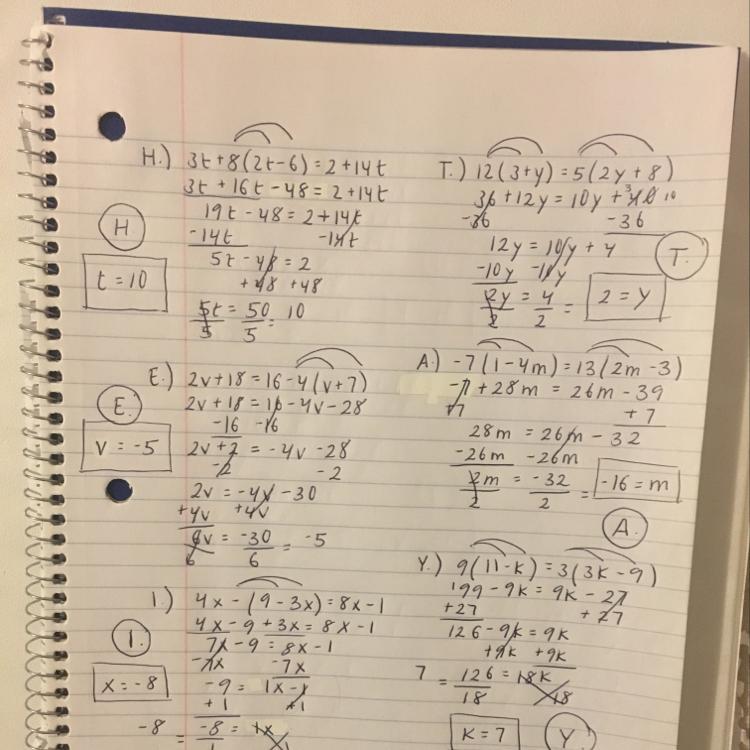 H.) 3t+8(2t-6)=2+14t
3t+16t-48=2+14t
19t-48=2+14t
-14t -14t
5t-48=2
+48 +48
5t/5=50/5=10
H
t=10
T.) 12(3+y)=5(2y+8)
36+12y=10y+40
-36 -36
12y=10y+4
-10y -10y
2y/2=4/2=
2=y
T.
E.) 2v+18=16-4(v+7)
2v+18=16-4v-28
-16 -16
2v+2=-4v-28
-2 -2
2v=-4v-30
+4v +4v
6v/6=-30/6=-5
E.
v=-5
A.) -7(1-4m)=13(2m-3)
-7+28m=26m-39
+7 +7
28m=26m-32
-26m -26m
2m/2=-32/2=
-16=m
A.
I.) 4x-(9-3x)=8x-1
4x-9+3x=8x-1
7x-9=8x-1
-7x -7x
-9=1x-1
+1 +1
-8 = -8/1=1x/1
I.
x=-8
Y.) 9(11-k)=3(3k-9)
199-9k=9k-27
+27 +27
126-9k=9k
+9k +9k
7=126/18=18k/18
k=7
Y